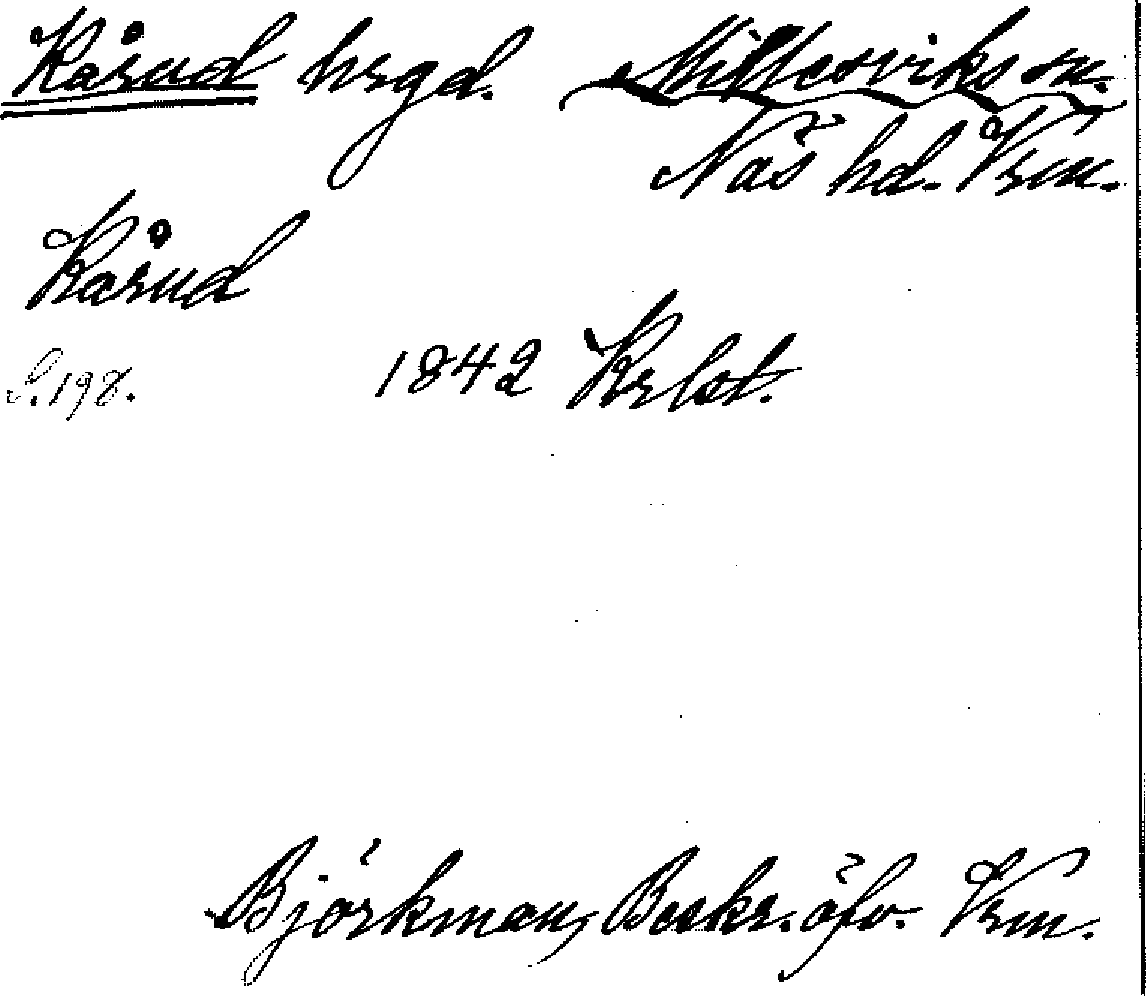 Kårud hrgd. Millesviks sn.
Näs hd. Vrm.
Kårud
S. 198. 1842 Krlst.
Björkman, Beskr. öfv. Vrm.